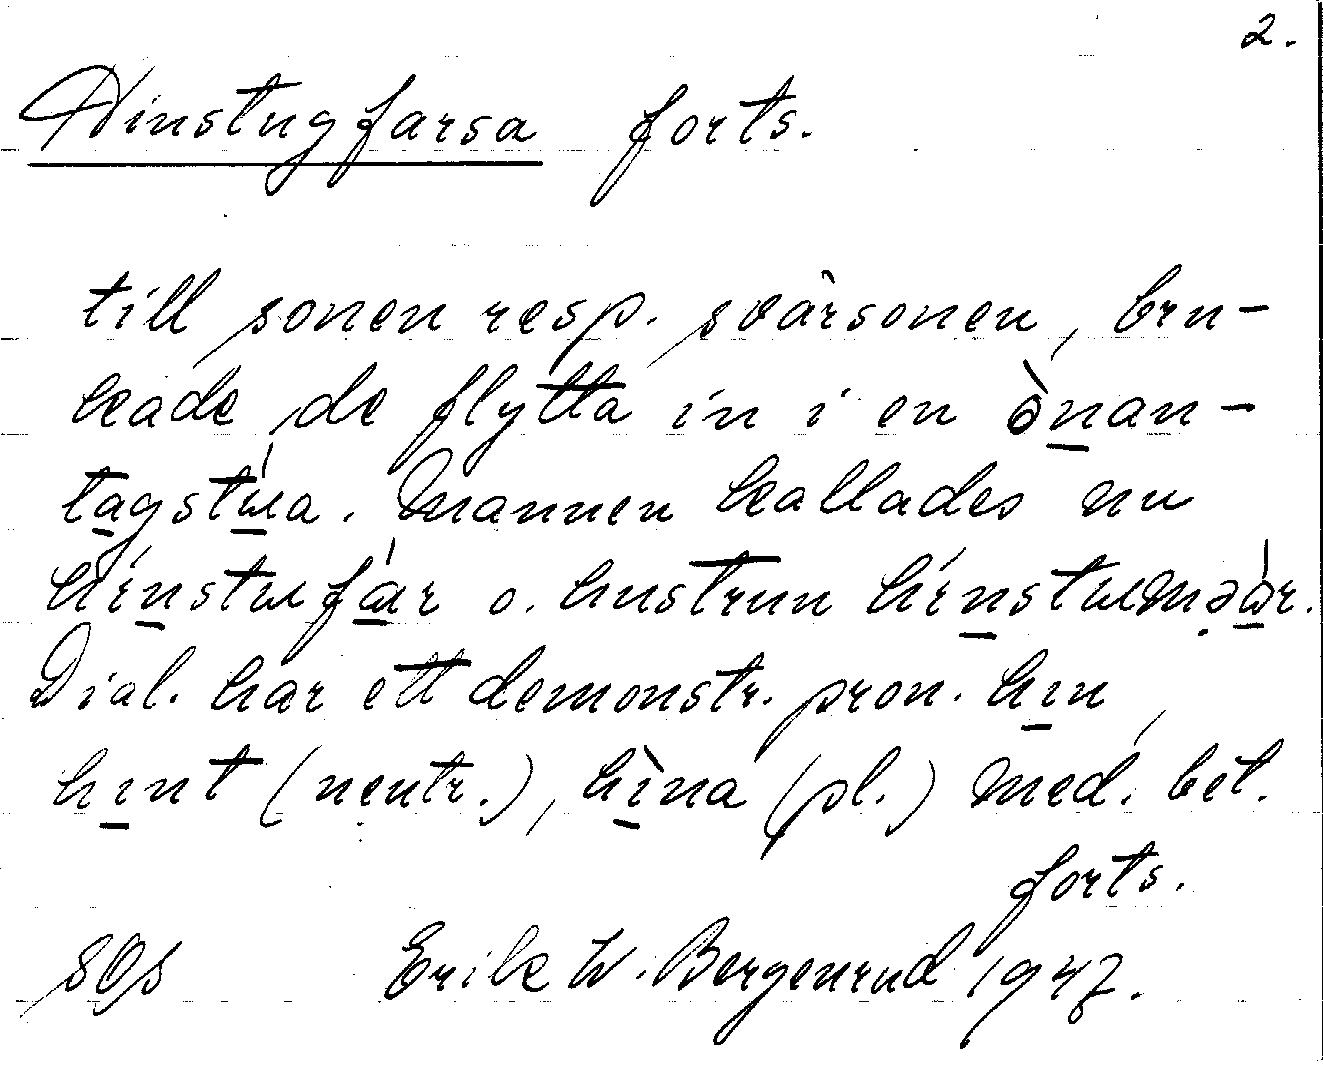 2.
Hinstugfarsa forts.
till sonen resp. svärsonen, bru-
kade de flytta in i en ònan-
tagstɯ́a. Mannen kallades nu
hínstɯfár o. hustrun hínstɯmoár.
Dial. har ett demonstr. pron. hin,
hint (neutr.), hìna (pl.) med. bet.
forts.
SOs Erik W. Bergenrud 1947.